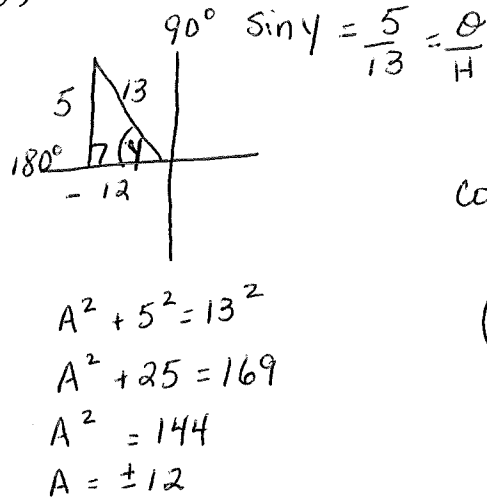 90° sin y = 5/13 = O/H
5
13
180°
y
- 12
A² + 5² = 13²
A² + 25 = 169
A² = 144
A = ±12